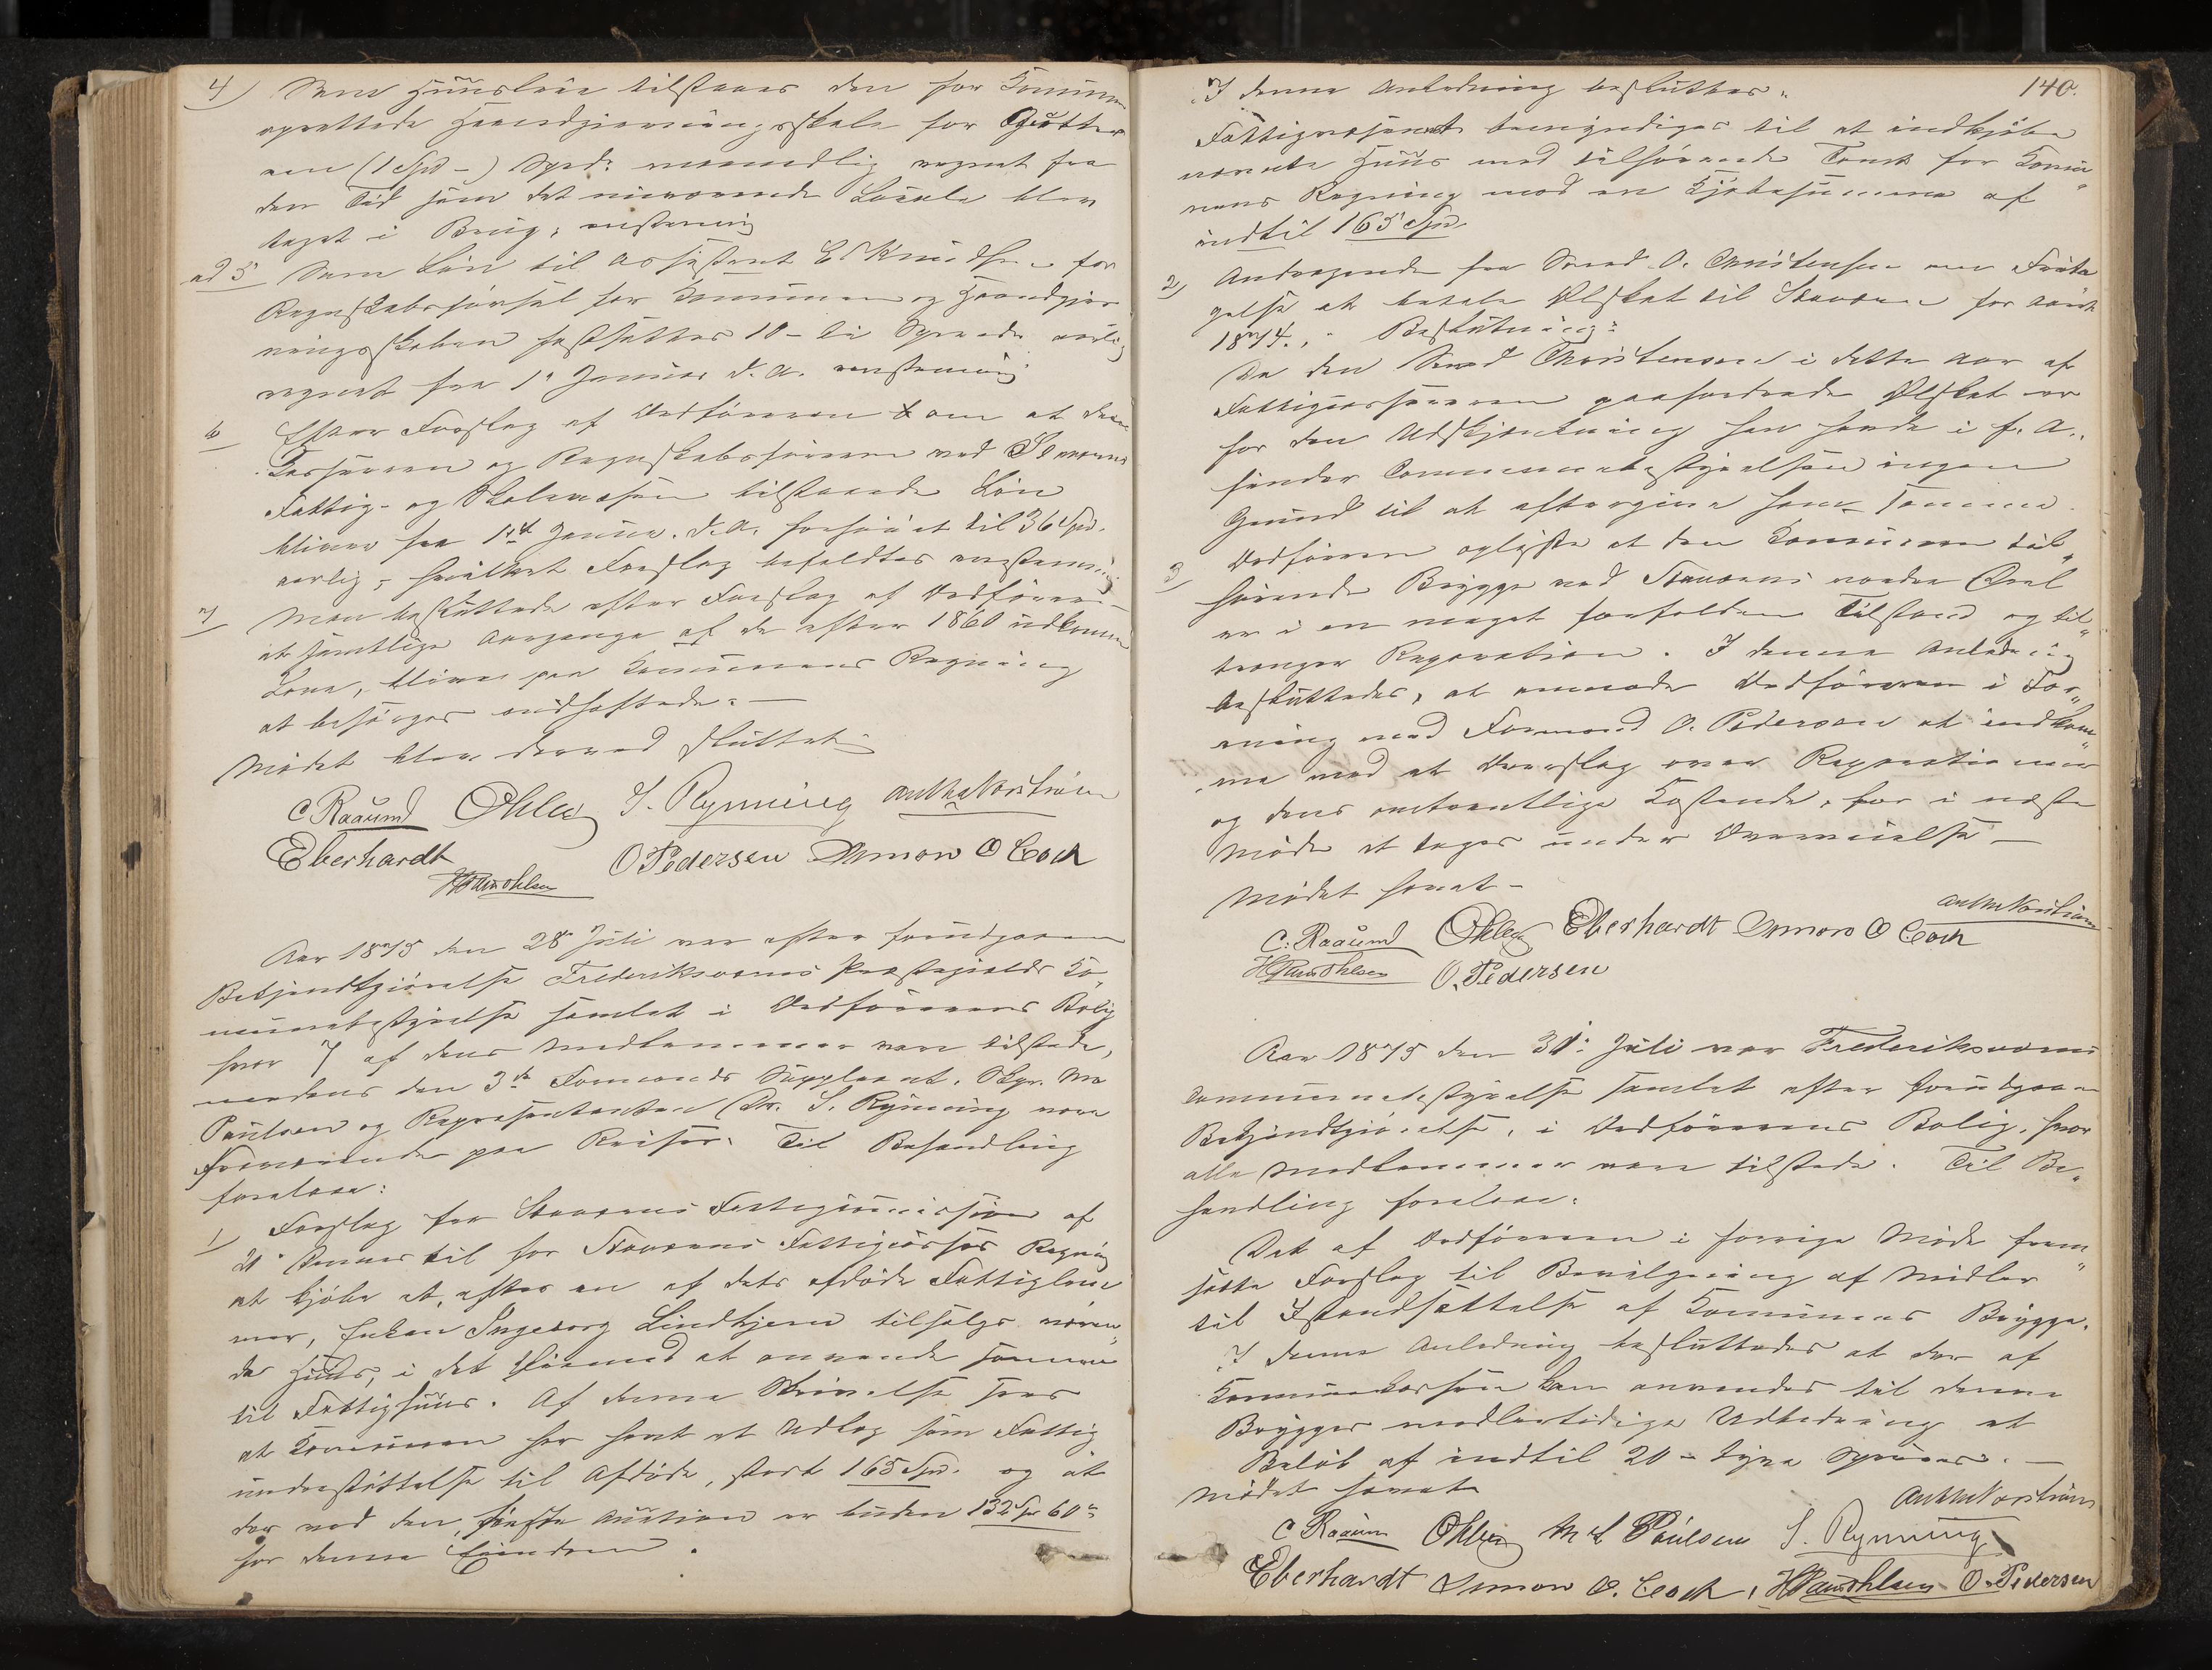 4) Som Huusleie tilstaaes den for Kommunen
oprettede Haandgjerningsskole for Gutter
een (1 Spd -) Spd. maanedlig regnet fra
den Tid som det nuværende Locale blev
taget i Brug, enstemmig
ad 5 Som Løn til Assistent E Knudsen for
Regnskabsførsel for Kommunen og Haandgjer
ningsskolen fastsættes 10 - ti Spesiedr aarlig
regnet fra 1 Januar d. A. enstemmig
6 Efter Forslag af Ordføreren om at den
Kassereren og Regnskabsføreren ved Staværns
Fattig- og Skolevæsen tilstaaede Løn
bliver fra 1ste Januar d. A. forhøiet til 36 Spd.
aarlig, hvilket Forslag bifaldtes enstemmig
7 Man besluttede efter Forslag af Ordføreren
at samtlige Aargange af de efter 1860 udkomne
Love, bliver paa Kommunens Regning
at besørges indheftede. -
Mødet blev dermed sluttet
C Raaum Ohlen S. Rynning
Eberhardt O Pedersen Simon O Coch
Aar 1875 den 28 Juli var efter forudgaaen
Bekjendtgjørelse Frederiksværns Præstegjelds Ko„
munebestyrelse samlet i Ordførerens Bolig
hvor 7 af dens Medlemmer vare tilstede,
medens den 3de Formands Suppleant, Skpr. M
Paulsen og Repræsentanten Dr. S. Rynning vare
fraværende paa Reiser. Til Behandling
forelaae:
1) Forslag fra Staværns Fattigcommission af
21 dennes til for Staværns Fattigkasses Regning
at kjøbe et, efter en af dets afdøde Fattiglem
mer, Enken Ingeborg Lindhjem tilsalgs væren„
de Huus, i det Øiemed at anvende samme
til Fattighuus. Af denne Skrivelse sees
at Kommunen har havt et Udlæg som Fattig
understøttelse til Afdøde, stort 165 Spd. og at
der ved den første Auction er buden 132 Spd 60 s
for denne Eiendom.
140.
I denne Anledning besluttes:
Fattigvæsenet bemyndiges til at indkjøbe
nævnte Huus med tilhørende Tomt for Komu„
nens Regning mod en Kjøbesumma af
indtil 165 Spd.
2) Andragende fra Smed O. Christensen om Frita
gelse at betale Ølskat til Staværn for Aaret
1874. Beslutning:
Da den Smed Christensen i dette Aar af
Fattigkassereren paafordrede Ølskat er
for den Udskjænkning han havde i f. A.,
finder Communebestyrelsen ingen
Grund til at eftergive ham samme.
3 Ordføreren oplyste at den Kommunen til„
hørende Brygge ved Staværns nordre Qval
er i en meget forfalden Tilstand og til„
trænger Reparation. I denne Anledning
besluttedes, at anmode Ordføreren i For„
ening med Formand O. Pedersen at indkom„
me med et Overslag over Reparationen
og dens omtrentlige Kostende, for i næste
Møde at tages under Overveielse -
Mødet hævet -
C. Raaum Ohlen Eberhardt Simon O Coch
O. Pedersen
Aar 1875 den 31. Juli var Frederiksværns
Communebestyrelse samlet efter forudgaaen
Bekjendtgjørelse, i Ordførerens Bolig, hvor
alle Medlemmer vare tilstede. Til Be„
handling forelaae:
Det af Ordføreren i forrige Møde frem„
satte Forslag til Bevilgning af Midler
til Istandsættelse af Kommunens Brygge.
I denne Anledning besluttedes at der af
Kommunekassen kan anvendes til denne
Brygges midlertidige Udbedring et
Beløb af indtil 20 - tyve Speciedr. -
Mødet hævet
C Raaum Ohlen M L Paulsen S. Rynning
Eberhardt Simon O. Coch O. Pedersen